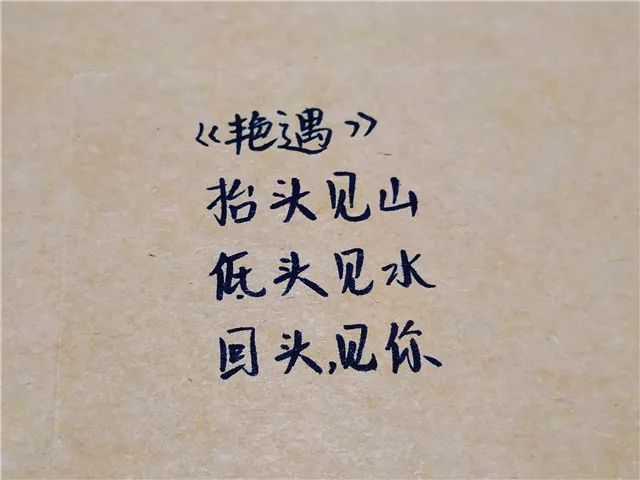 《艳遇》
抬头见山
低头见水
回头,见你